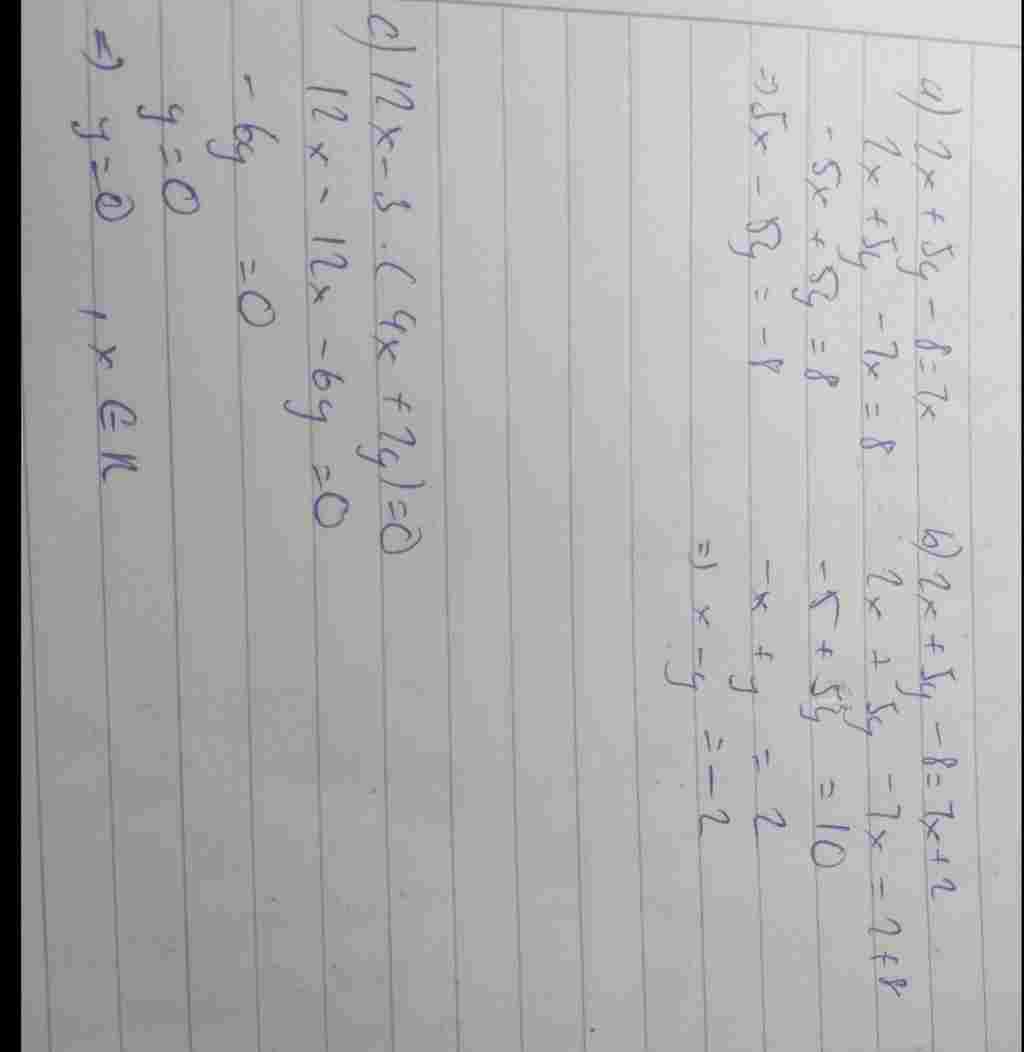 a) 2x + 5y - 8 = 7x
2x + 5y - 7x = 8
- 5x + 5y = 8
=> 5x - 5y = - 8
b) 2x + 5y - 8 = 7x + 2
2x + 5y - 7x = 2 + 8
- 5 + 5y = 10
- x + y = 2
=> x - y = - 2
c) 12x - 3 . ( 4x + 2y ) = 0
12x - 12x - 6y = 0
- 6y = 0
y = 0
=> y = 0 , x ∈ R